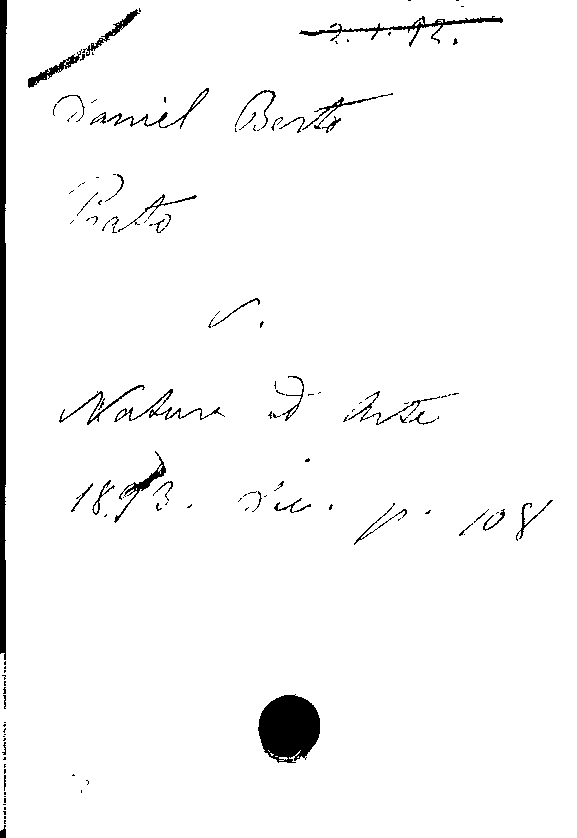 2.1.92.
Daniel Berto
Prato
v.
Natura ed Arte
1893. Dic. p. 108